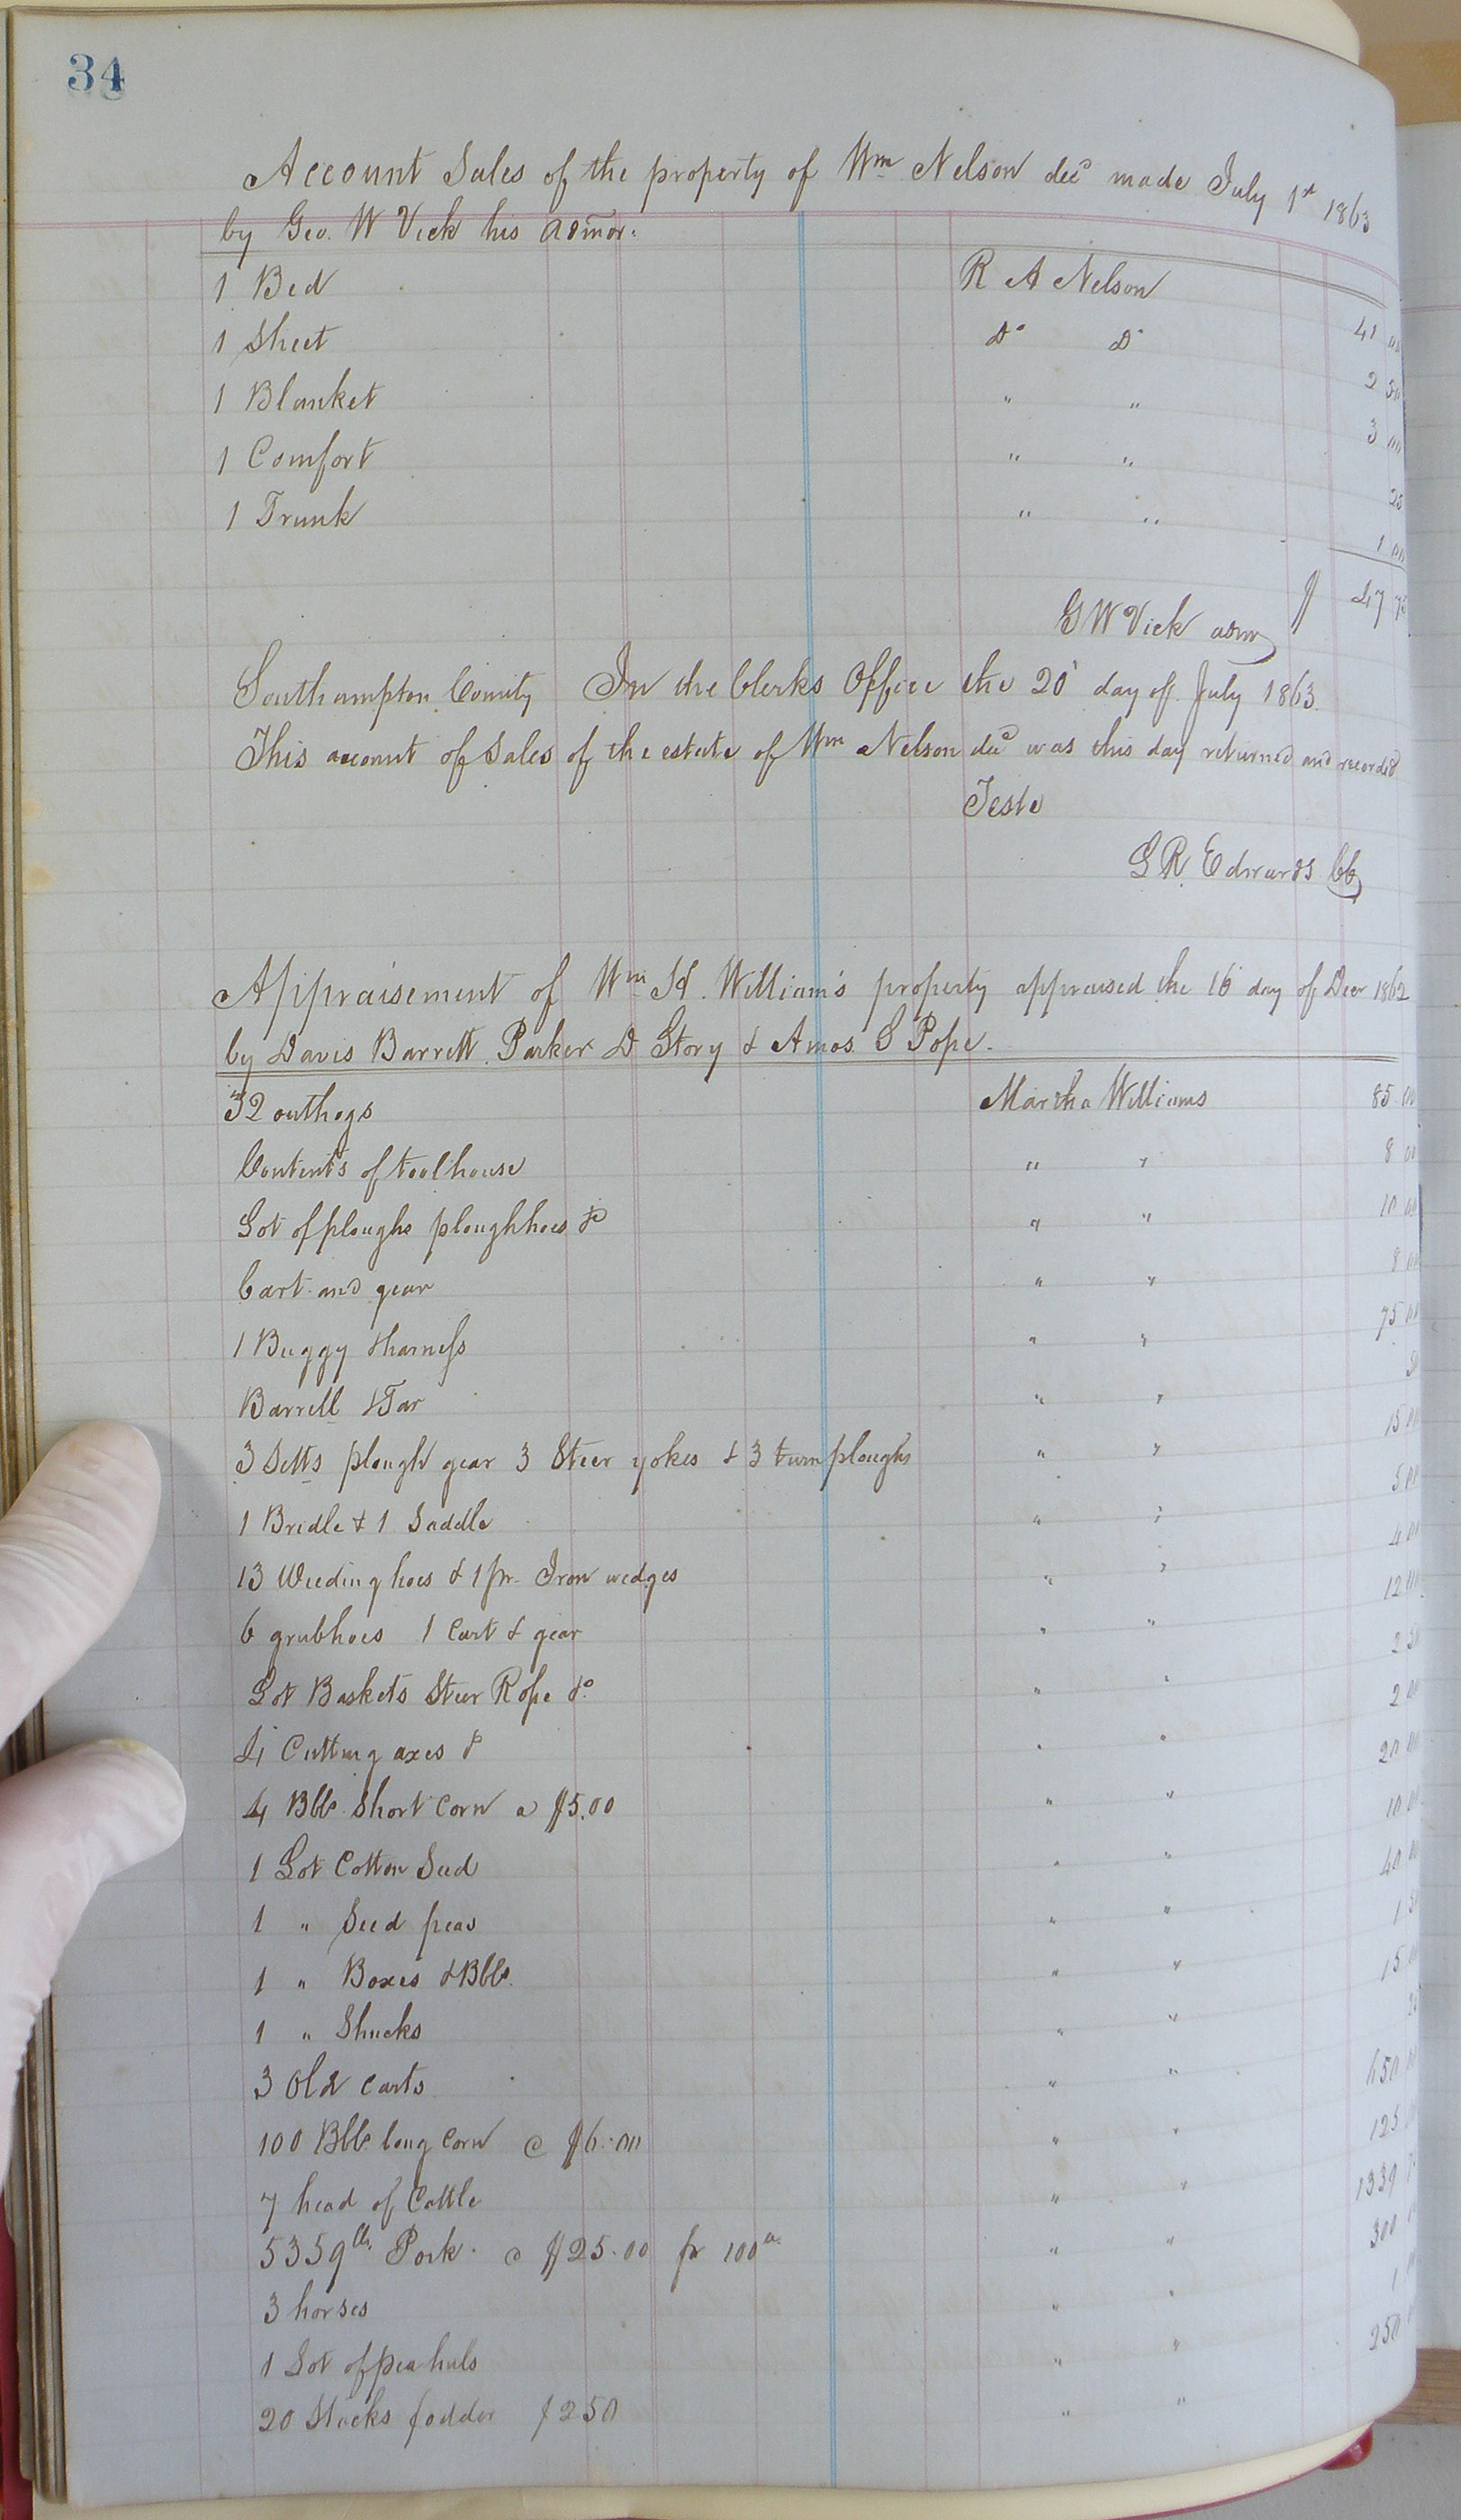 34
Account Sales of the property of Wm Nelson decd made July 1st 1863
by Geo. W Vick his admor.
1 Bed R A Nelson 41 00
1 Sheet Do Do 2 50
1 Blanket " " 3 00
1 Comfort " " 25
1 Trunk " " 1 00
$ 47 75
G W Vick admr
Southampton County In the Clerks Office the 20 day of July 1863.
This account of Sales of the estate of Wm Nelson decd was this day returned and recorded
Teste
L R Edwards CC
Appraisement of Wm H. William's property appraised the 16 day of Decr 1862
by Davis Barrett. Parker D Story & Amos. S Pope.
32 outhogs Martha Williams 85 00
Contents of toolhouse " " 8 00
Lot of ploughs ploughhoes &c " " 10 00
Cart and gear " " 8 00
1 Buggy & harness " " 75 00
Barrell & Tar " " 50
3 Setts plough gear 3 Steer yokes & 3 turn ploughs " " 15 00
1 Bridle & 1 Saddle " " 5 00
13 Weeding hoes & 1 pr. Iron wedges " " 4 00
6 grubhoes 1 Cart & gear " " 12 00
Lot Baskets Steer Rope &c " " 2 50
4 Cutting axes & " " 2 00
4 Bbls Short Corn a $5.00 " " 20 00
1 Lot Cotton Seed " " 10 00
1 " Seed peas " " 40 00
1 " Boxes & Bbls. " " 1 50
1 " Shucks " " 15 00
3 Old Carts " "
100 Bbls long Corn @ " " 650
7 head of Cattle " " 125
5359 lbs Pork. @ $25.00 pr 100 " " 1339
3 horses " " 300
1 Lot of pea huls " " 1
20 Stacks fodder $250 " " 250